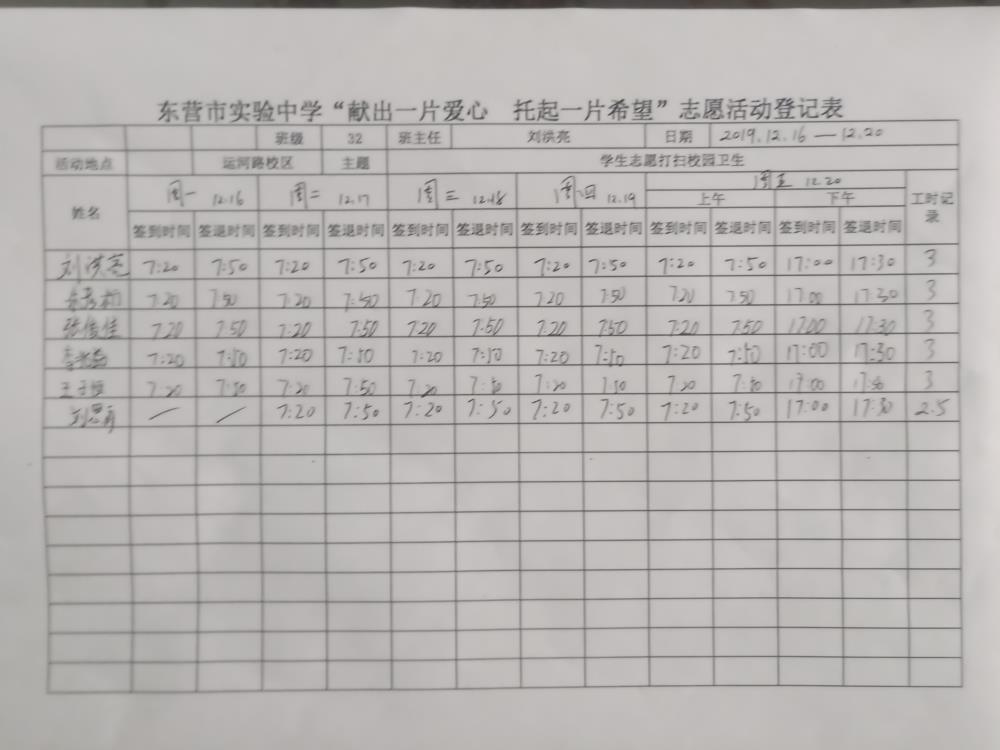 东营市实验中学“献出一片爱心 托起一片希望”志愿活动登记表
班级 32 班主任 刘洪亮 日期 2019.12.16—12.20
活动地点 运河路校区 主题 学生志愿打扫校园卫生
姓名 周一 12.16 周二 12.17 周三 12.18 周四 12.19 周五 12.20 工时记录
上午 下午
签到时间 签退时间 签到时间 签退时间 签到时间 签退时间 签到时间 签退时间 签到时间 签退时间 签到时间 签退时间
刘洪亮 7:20 7:50 7:20 7:50 7:20 7:50 7:20 7:50 7:20 7:50 17:00 17:30 3
7:20 7:50 7:20 7:50 7:20 7:50 7:20 7:50 7:20 7:50 17:00 17:30 3
张俊佳 7:20 7:50 7:20 7:50 7:20 7:50 7:20 7:50 7:20 7:50 17:00 17:30 3
7:20 7:50 7:20 7:50 7:20 7:50 7:20 7:50 7:20 7:50 17:00 17:30 3
王子恒 7:20 7:50 7:20 7:50 7:20 7:50 7:20 7:50 7:20 7:50 17:00 17:30 3
— — 7:20 7:50 7:20 7:50 7:20 7:50 7:20 7:50 17:00 17:30 2.5